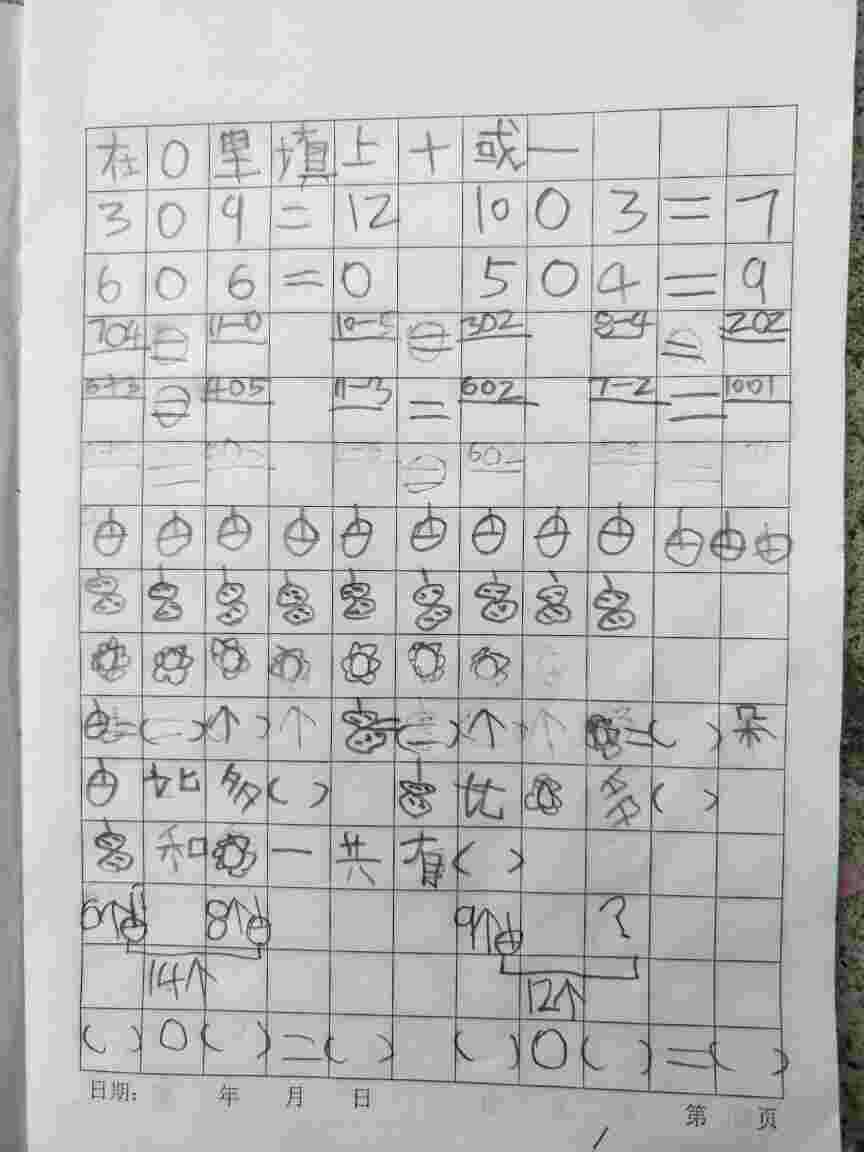 在○里填上+或-
3○9=12 10○3=7
6○6=0 5○4=9
7○4=11-0 10-5=3○2 8-4=2○2
6+3=4○5 11-3=6○2 7-2=10○1
=( )个 =( )个 =( )朵
比 多( ) 比 多( )
和 一共有( )
6个 8个 9个 ?
14个 12个
( )○( )=( ) ( )○( )=( )
日期: 年 月 日 第 页